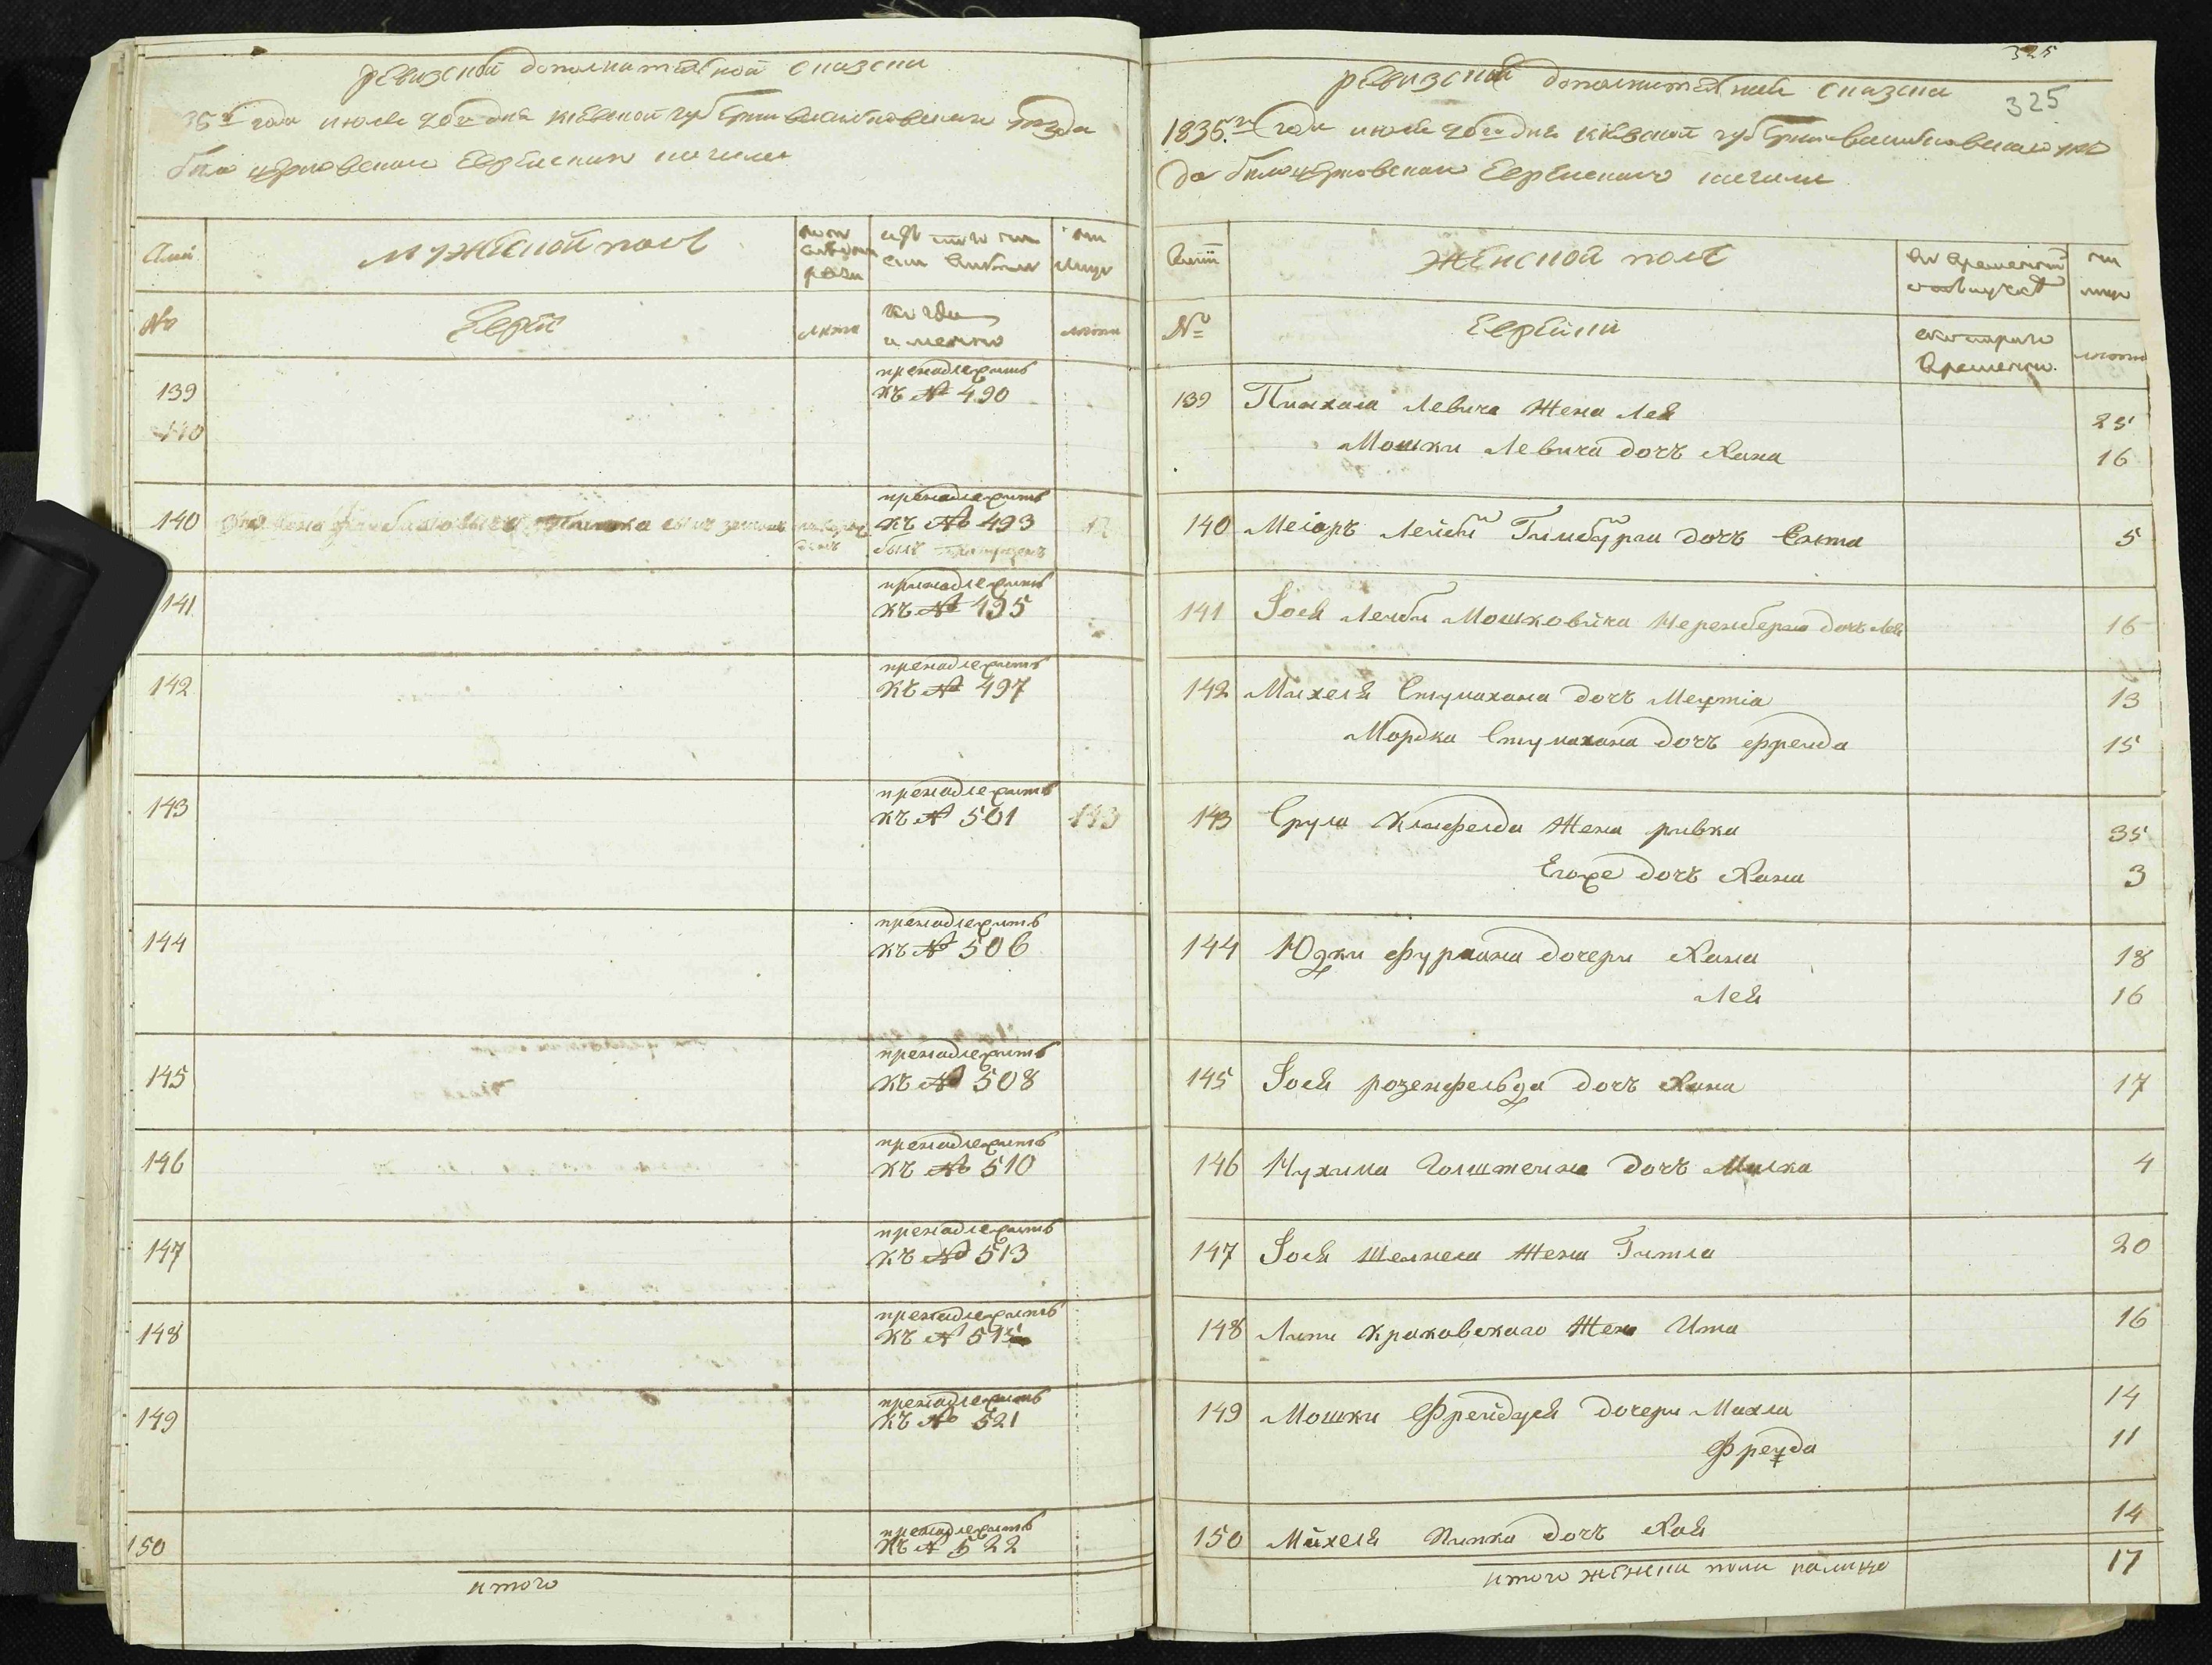 ревизской дополнительной сказки
35го года июля 20го дня киевской губернии васильковского уезда
бело церковского Еврейского кагала
мужеской полъ
№
Евреи
лета
когда
именно
лета
139
пренадлежитъ
къ № 490
140
140
пренадлежитъ
къ № 493
141
принадлежитъ
къ № 495
142
пренадлежитъ
къ № 497
143
пренадлежитъ
къ № 501
143
144
пренадлежитъ
къ № 506
145
пренадлежитъ
къ № 508
146
пренадлежитъ
къ № 510
147
пренадлежитъ
къ № 513
148
пренадлежитъ
къ № 515
149
пренадлежитъ
къ № 521
150
пренадлежитъ
къ № 522
итого
325
325
ревизской дополнительной сказки
1835го года июля 20го дня киевской губернии васильковского уез
да белоцерковского Еврейского кагала
женской полъ
№
Еврейки
с которого
времени
лета
139 Пинхаса Левича жена Лея 25
Мошки Левича дочъ Хана 16
140 Меиоръ Лейбы Гинсбурга дочъ Ента 5
141 Иося Лейбы Мошковича Неренберга дочъ Лея 16
142 Михеля Стумахана дочъ 13
Мордка Стумахана дочъ Фрейда 15
143 Срула Клифелда жена ривка 35
Егоже дочъ Хана 3
144 Юдки Фурмана дочери Хана 18
Лея 16
145 Иося розенфельда дочъ Хана 17
146 Нухима Голштеина дочъ Малка 4
147 Иося жена Гитла 20
148 Краковского жена Ита 16
149 Мошки дочери Махла 14
Фрейда 11
150 Михеля Пинка дочъ Хая 14
итого женска пола налицо 17